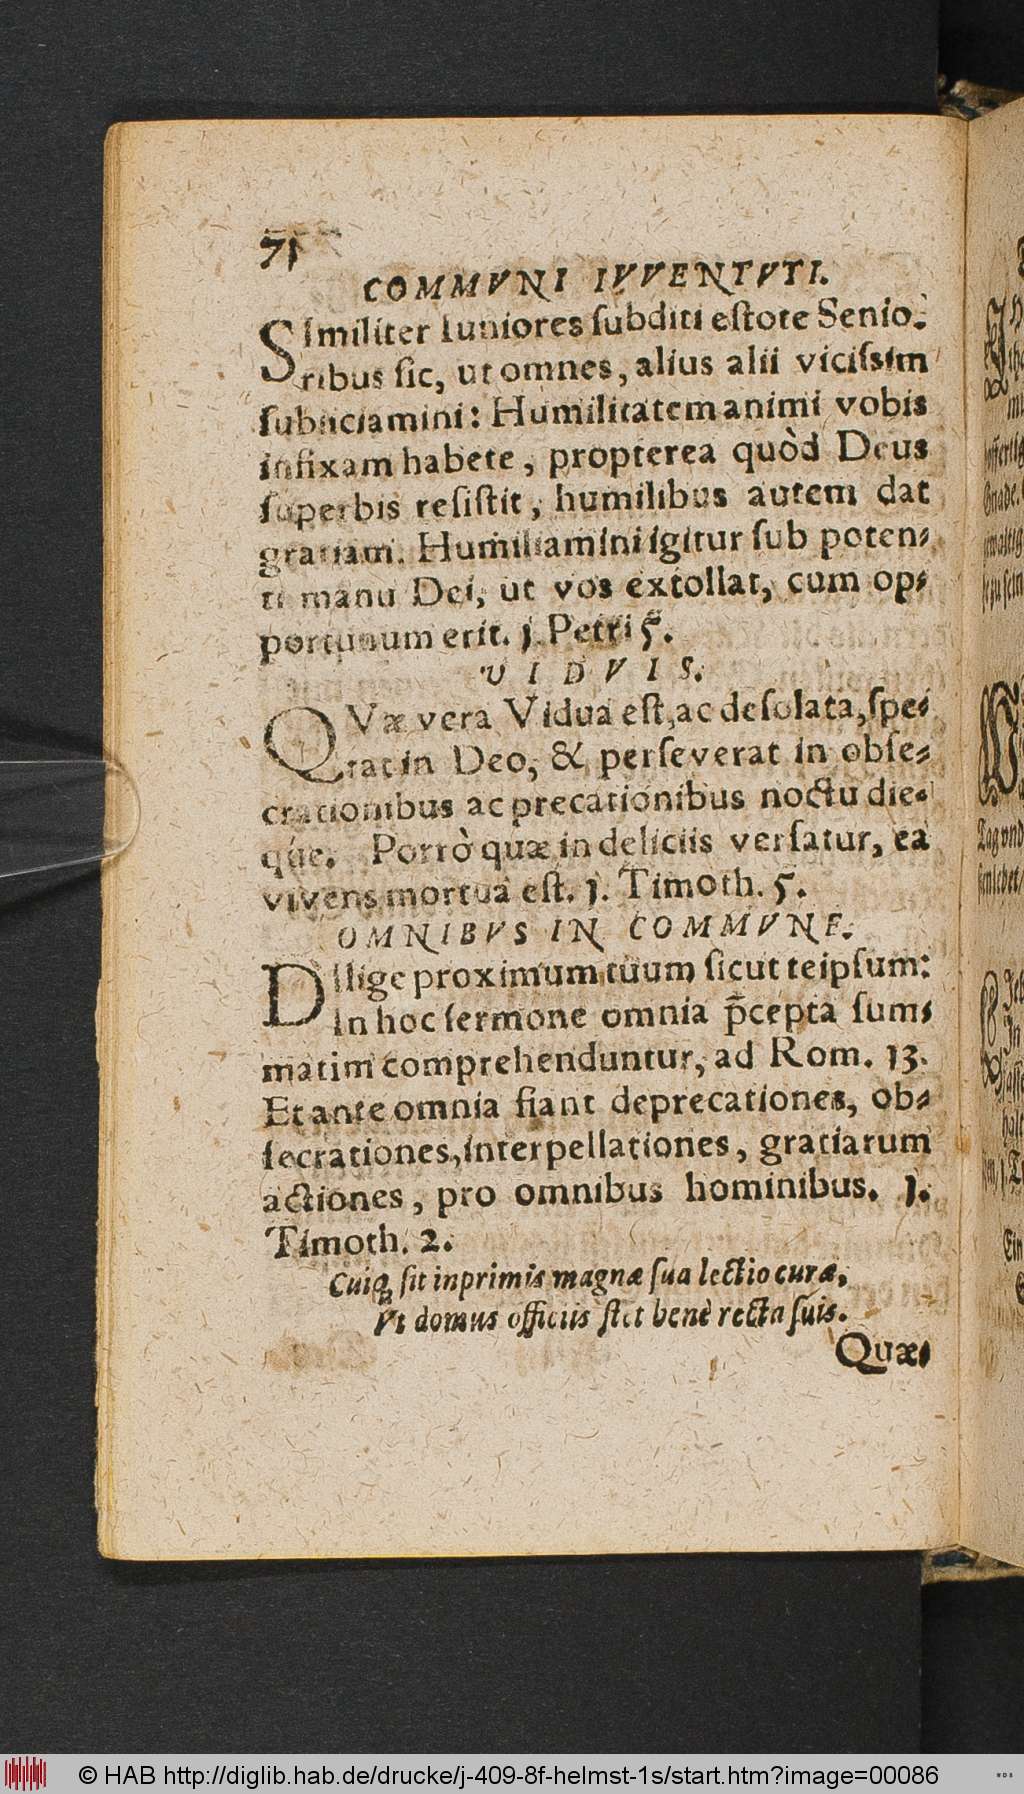 71
COMMVNI IVVENTVTI.
SImiliter Iuniores ſubditi eſtote Senio-
ribus ſic, ut omnes, alius alii viciſsim
ſubiiciamini: Humilitatem animi vobis
infixam habete, propterea quòd Deus
ſuperbis reſiſtit, humilibus autem dat
gratiam. Humiliamini igitur ſub poten-
ti manu Dei, ut vos extollat, cum op-
portunum erit. 1. Petri 5.
VIDVIS.
QVæ vera Vidua eſt, ac deſolata, ſpe-
rat in Deo, & perſeverat in obſe-
crationibus ac precationibus noctu die-
que. Porrò quæ in deliciis verſatur, ea
vivens mortua eſt. 1. Timoth. 5.
OMNIBVS IN COMMVNE.
DIlige proximum tuum ſicut teipſum:
In hoc ſermone omnia p̄cepta ſum-
matim comprehenduntur, ad Rom. 13.
Et ante omnia fiant deprecationes, ob-
ſecrationes, interpellationes, gratiarum
actiones, pro omnibus hominibus. 1.
Timoth. 2.
Cuiq; ſit inprimis magnæ ſua lectio curæ,
Vt domus officiis ſtet benè recta ſuis.
Quæ-
© HAB http://diglib.hab.de/drucke/j-409-8f-helmst-1s/start.htm?image=00086